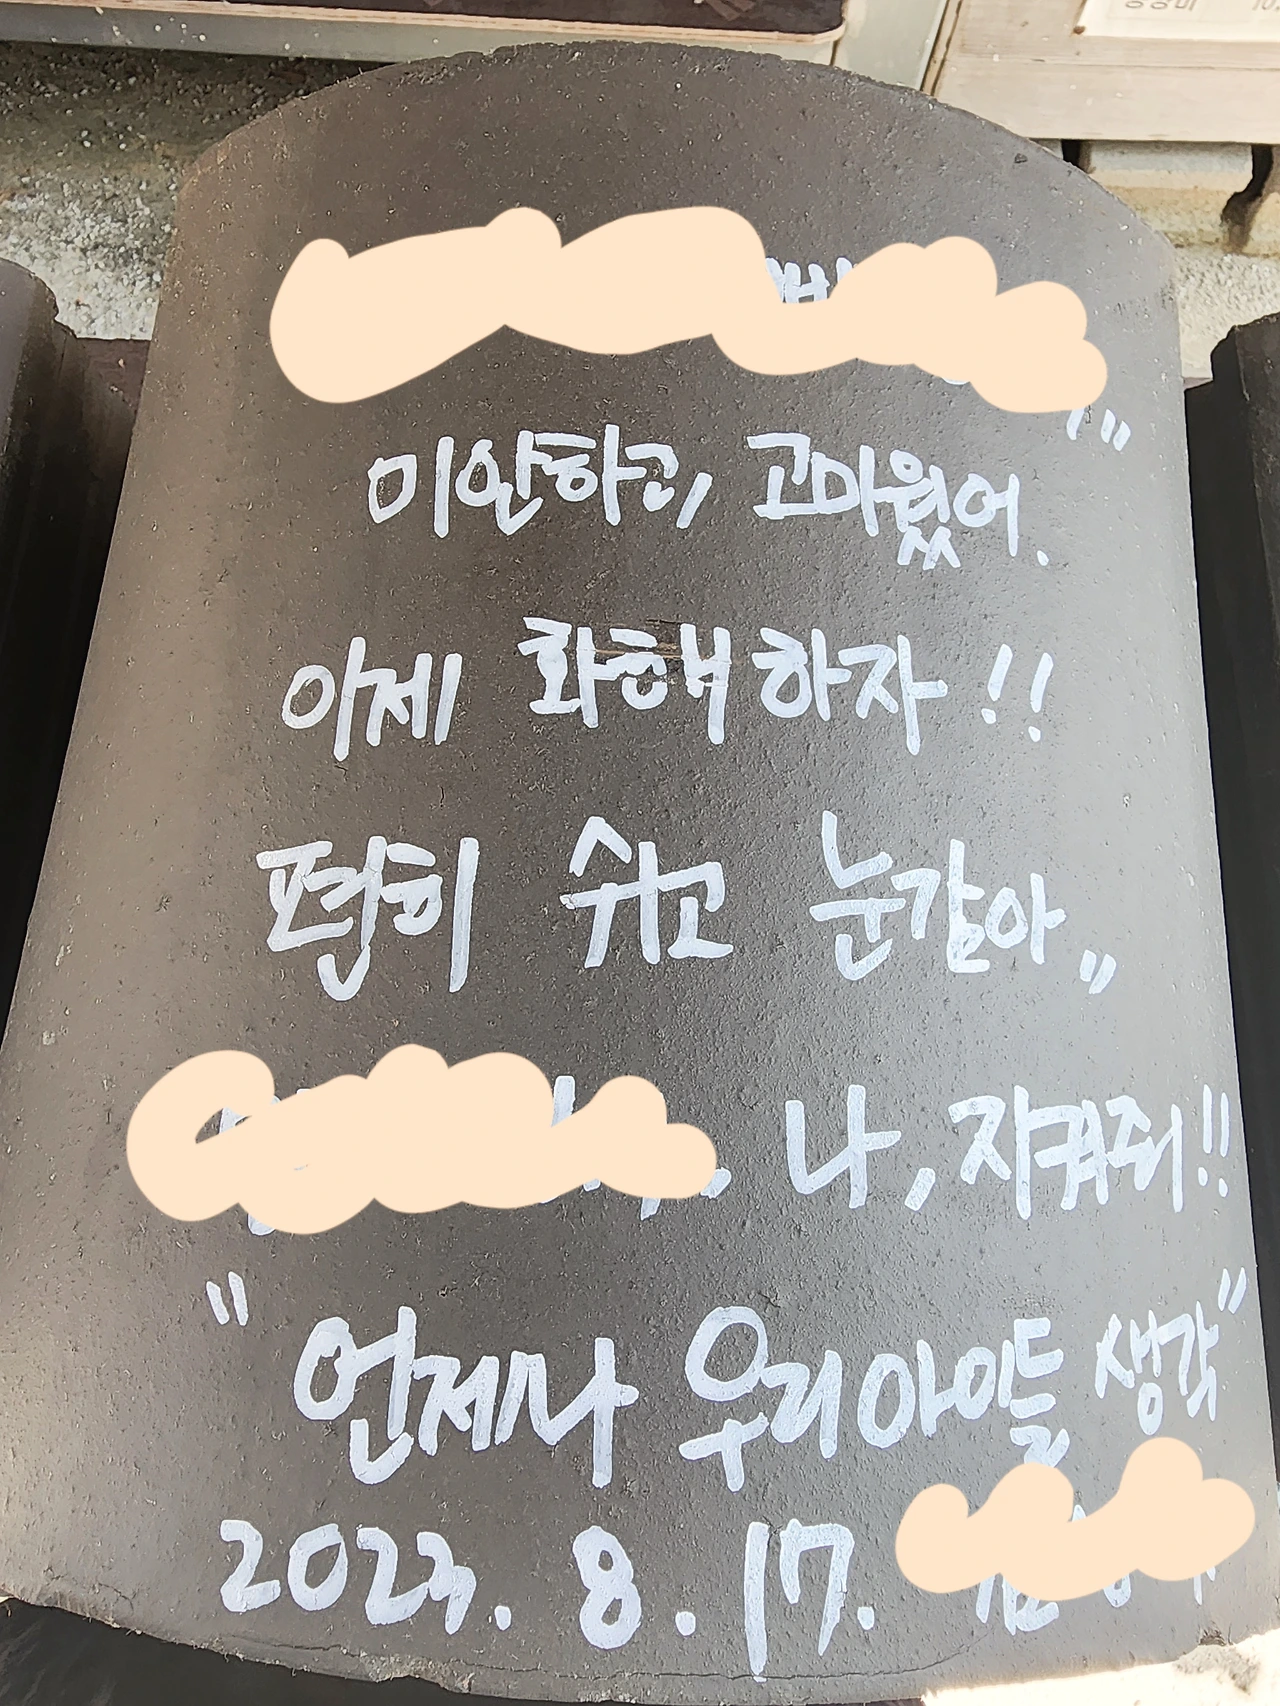 미안하고, 고마웠어.
이제 화해하자!!
편히 쉬고 눈감아"
나, 지켜줘!!
"언제나 우리아이들 생각"
2023. 8. 17.